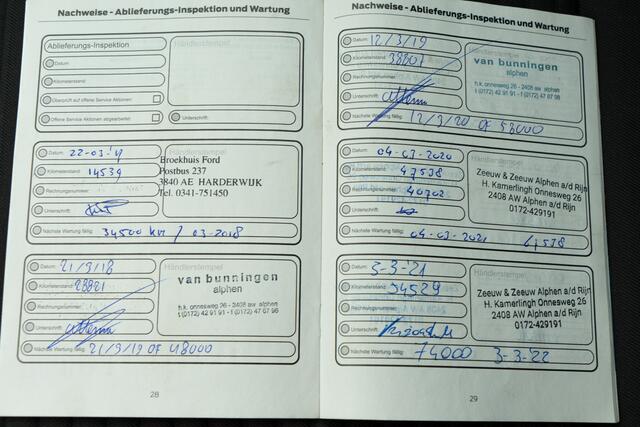 Nachweise - Ablieferungs-Inspektion und Wartung
Ablieferungs-Inspektion
Händlerstempel
Datum:
Kilometerstand:
Überprüft auf offene Service Aktionen:
Offene Service Aktionen abgearbeitet:
Unterschrift:
Datum: 22-03-'17
Kilometerstand: 14539
Rechnungsnummer:
Unterschrift:
Nächste Wartung fällig: 34500 km / 03-2018
Broekhuis Ford
Postbus 237
3840 AE HARDERWIJK
Tel. 0341-751450
Datum: 21/9/18
Kilometerstand: 28821
Rechnungsnummer:
Unterschrift:
Nächste Wartung fällig: 21/9/19 OF 48000
Händlerstempel
van bunningen
alphen
h.k. onnesweg 26 - 2408 aw alphen
t (0172) 42 91 91 - f (0172) 47 87 98
28
Nachweise - Ablieferungs-Inspektion und Wartung
Datum: 12/3/19
Kilometerstand: 38807
Rechnungsnummer:
Unterschrift:
Nächste Wartung fällig: 12/3/20 OF 58000
Händlerstempel
van bunningen
alphen
h.k. onnesweg 26 - 2408 aw alphen
t (0172) 42 91 91 - f (0172) 47 87 98
Datum: 04-03-2020
Kilometerstand: 47538
Rechnungsnummer: 40702
Unterschrift:
Nächste Wartung fällig: 04-03-2021
Zeeuw & Zeeuw Alphen a/d Rijn
H. Kamerlingh Onnesweg 26
2408 AW Alphen a/d Rijn
0172-429191
Datum: 3-3-'21
Kilometerstand: 54529
Rechnungsnummer:
Unterschrift:
Nächste Wartung fällig: 74000 3-3-22
Händlerstempel
Zeeuw & Zeeuw Alphen a/d Rijn
H. Kamerlingh Onnesweg 26
2408 AW Alphen a/d Rijn
0172-429191
29